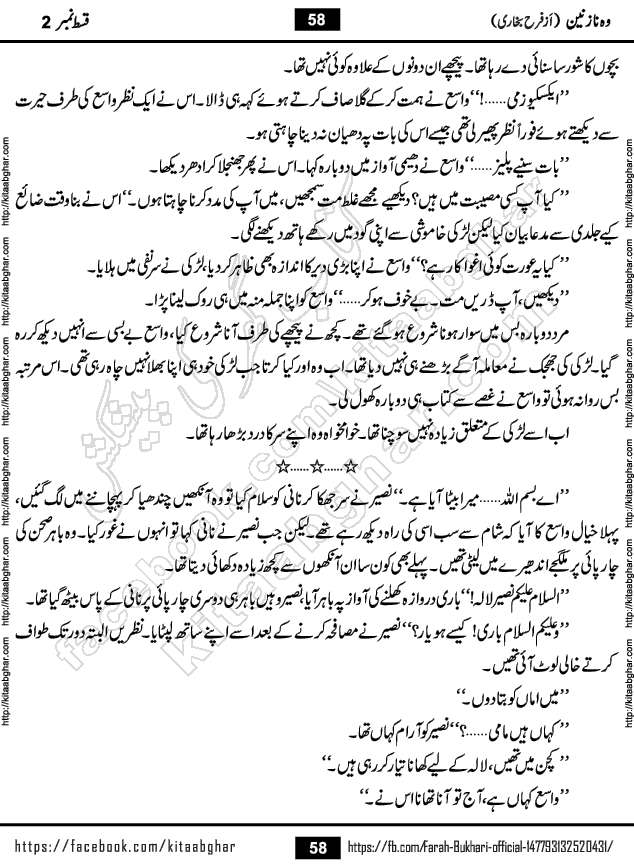 وہ نازنین (از فرح بخاری)
58
قسط نمبر 2
بچوں کا شور سا سنائی دے رہا تھا۔ پیچھے ان دونوں کے علاوہ کوئی نہیں تھا۔
’’ایکسکیوزمی......!‘‘ واسع نے ہمت کر کے گلا صاف کرتے ہوئے کہہ ہی ڈالا۔ اس نے ایک نظر واسع کی طرف حیرت
سے دیکھتے ہوئے فوراً نظر پھیر لی تھی جیسے اس کی بات پہ دھیان نہ دینا چاہتی ہو۔
’’بات سنیے پلیز......‘‘ واسع نے دھیمی آواز میں دوبارہ کہا۔ اس نے پھر جھنجلا کر ادھر دیکھا۔
’’کیا آپ کسی مصیبت میں ہیں؟ دیکھیے مجھے غلط مت سمجھیں، میں آپ کی مدد کرنا چاہتا ہوں۔‘‘ اس نے بنا وقت ضائع
کیے جلدی سے مدعا بیان کیا لیکن لڑکی خاموشی سے اپنی گود میں رکھے ہاتھ دیکھنے لگی۔
’’کیا یہ عورت کوئی اغوا کار ہے؟‘‘ واسع نے اپنا بڑی دیر کا اندازہ بھی ظاہر کر دیا، لڑکی نے سر نفی میں ہلایا۔
’’دیکھیں، آپ ڈریں مت۔ بے خوف ہو کر......‘‘ واسع کو اپنا جملہ منہ میں ہی روک لینا پڑا۔
مرد دوبارہ بس میں سوار ہونا شروع ہو گئے تھے۔ کچھ نے پیچھے کی طرف آنا شروع کیا، واسع بے بسی سے انہیں دیکھ کر رہ
گیا۔ لڑکی کی جھجک نے معاملہ آگے بڑھنے ہی نہیں دیا تھا۔ اب وہ اور کیا کرتا جب لڑکی خود ہی اپنا بھلا نہیں چاہ رہی تھی۔ اس مرتبہ
بس روانہ ہوئی تو واسع نے غصے سے کتاب ہی دوبارہ کھول لی۔
اب اسے لڑکی کے متعلق زیادہ نہیں سوچنا تھا۔ خوامخواہ وہ اپنے سر کا درد بڑھا رہا تھا۔
☆......☆......☆
’’اے بسم اللہ......میرا بیٹا آیا ہے۔‘‘ نصیر نے سر جھکا کر نانی کو سلام کیا تو وہ آنکھیں چندھیا کر پہچاننے میں لگ گئیں،
پہلا خیال واسع کا آیا کہ شام سے سب اسی کی راہ دیکھ رہے تھے۔ لیکن جب نصیر نے نانی کہا تو انہوں نے غور کیا۔ وہ باہر صحن کی
چارپائی پر ملگجے اندھیرے میں لیٹی تھیں۔ پہلے بھی کون سا ان آنکھوں سے کچھ زیادہ دکھائی دیتا تھا۔
’’السلام علیکم نصیر لالہ!‘‘ باری دروازہ کھلنے کی آواز پہ باہر آیا، نصیر وہیں باہر ہی دوسری چارپائی پر نانی کے پاس بیٹھ گیا تھا۔
’’وعلیکم السلام باری! کیسے ہو یار؟‘‘ نصیر نے مصافحہ کرنے کے بعد اسے اپنے ساتھ لپٹایا۔ نظریں البتہ دور تک طواف
کرتے خالی لوٹ آئی تھیں۔
’’میں اماں کو بتا دوں۔‘‘
’’کہاں ہیں مامی......؟‘‘ نصیر کو آرام کہاں تھا۔
’’کچن میں تھیں، لالہ کے لیے کھانا تیار کر رہی ہیں۔‘‘
’’واسع کہاں ہے، آج تو آنا تھا نا اس نے۔‘‘
http://kitaabghar.com http://kitaabghar.com http://kitaabghar.com http://kitaabghar.com http://kitaabghar.com http://kitaabghar.com
http://kitaabghar.com http://kitaabghar.com http://kitaabghar.com http://kitaabghar.com http://kitaabghar.com http://kitaabghar.com
کتاب گھر کی پیشکش
facebook.com/kitaabghar
kitaabghar.com
https://facebook.com/kitaabghar
58
https://fb.com/Farah-Bukhari-official-147793132520431/